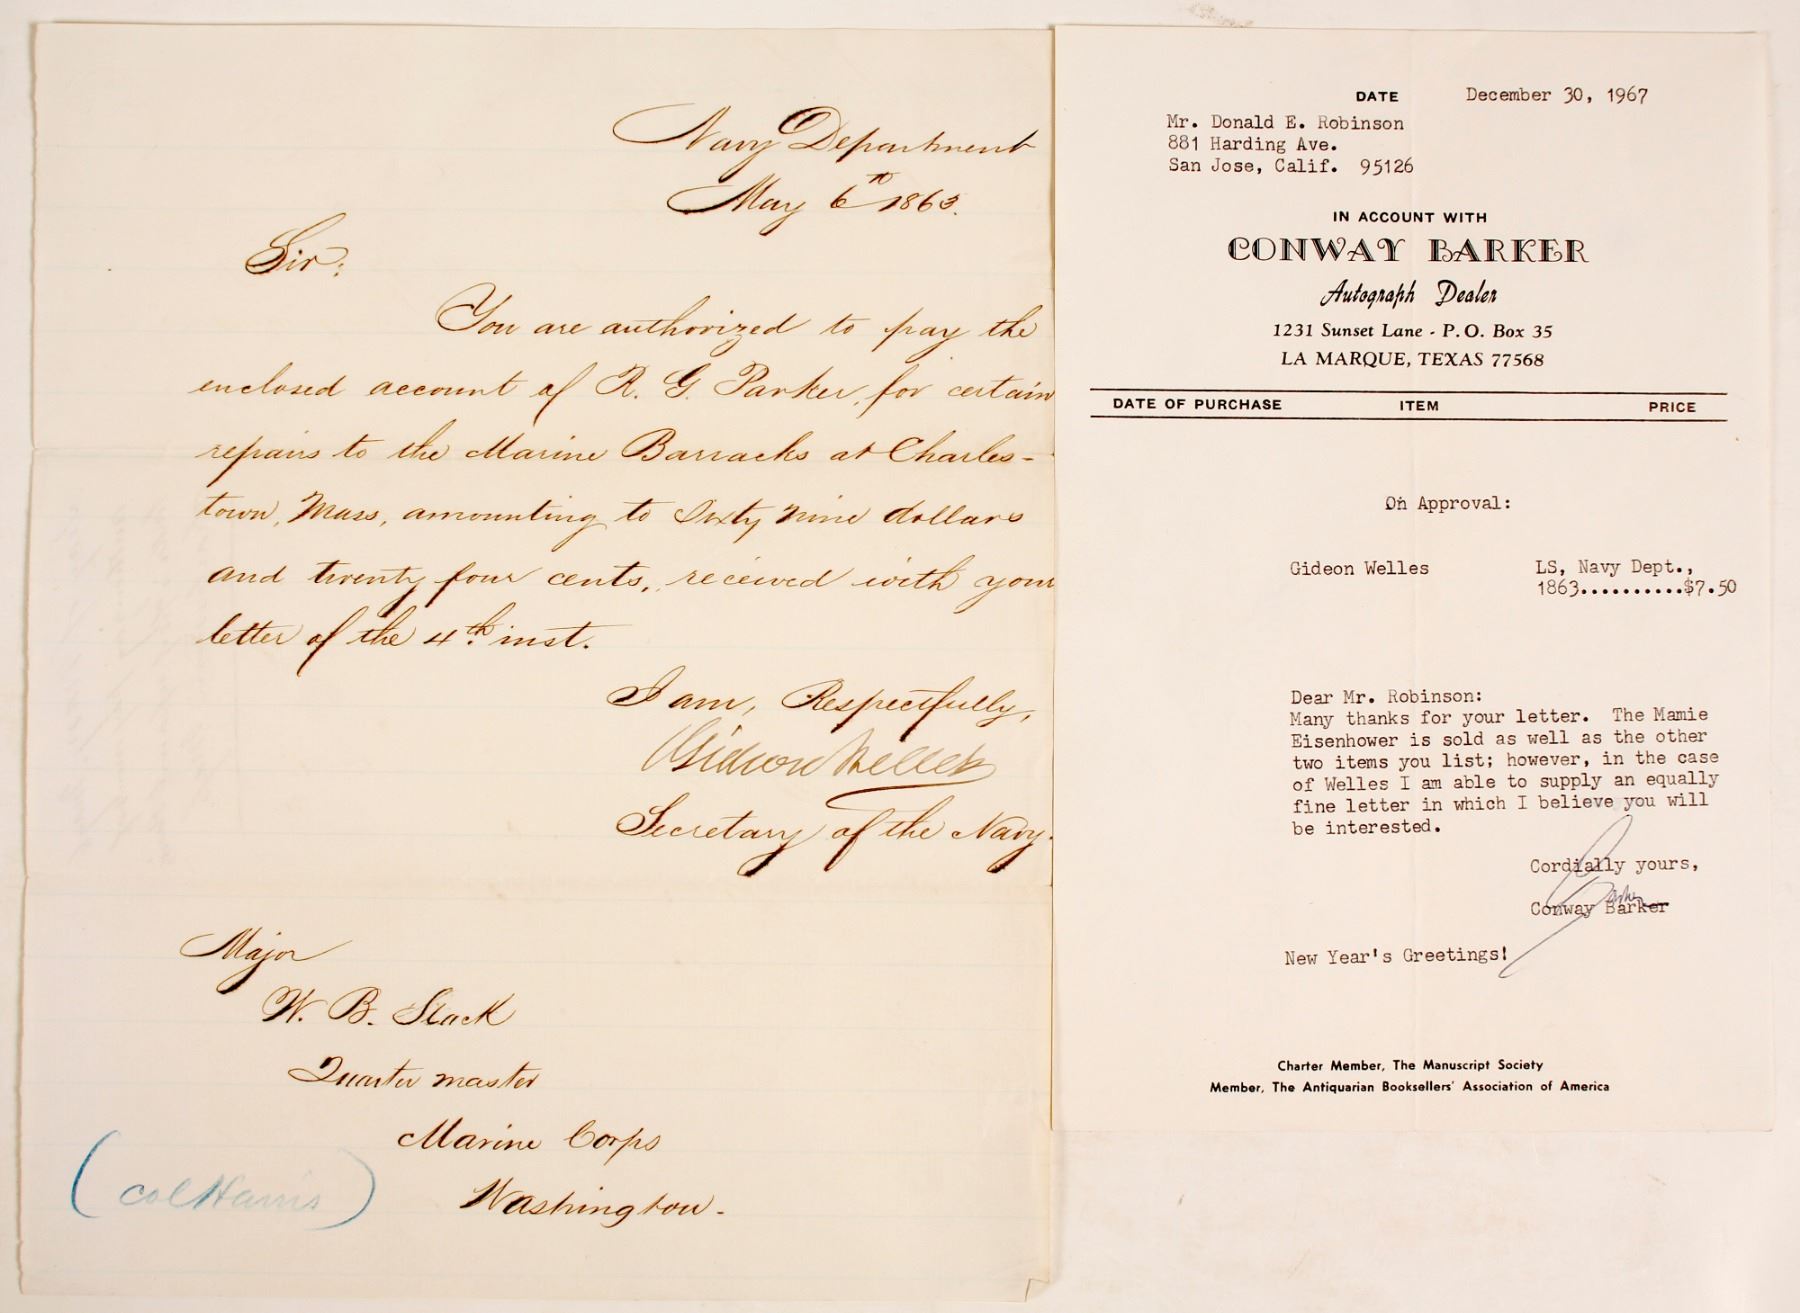 Navy Department
May 6th 1863.
Sir:
You are authorized to pay the
enclosed account of R. G. Parker, for certain
repairs to the Marine Barracks at Charles-
town, Mass, amounting to Sixty nine dollars
and twenty four cents, received with your
letter of the 4th inst.
I am, Respectfully,
Gideon Welles
Secretary of the Navy.
Major
W. B. Slack
Quarter master
Marine Corps
Washington.
(Col Harris)
DATE December 30, 1967
Mr. Donald E. Robinson
881 Harding Ave.
San Jose, Calif. 95126
IN ACCOUNT WITH
CONWAY BARKER
Autograph Dealer
1231 Sunset Lane - P. O. Box 35
LA MARQUE, TEXAS 77568
DATE OF PURCHASE ITEM PRICE
On Approval:
Gideon Welles LS, Navy Dept.,
1863..........$7.50
Dear Mr. Robinson:
Many thanks for your letter. The Mamie
Eisenhower is sold as well as the other
two items you list; however, in the case
of Welles I am able to supply an equally
fine letter in which I believe you will
be interested.
Cordially yours,
Barker
Conway Barker
New Year's Greetings!
Charter Member, The Manuscript Society
Member, The Antiquarian Booksellers' Association of America